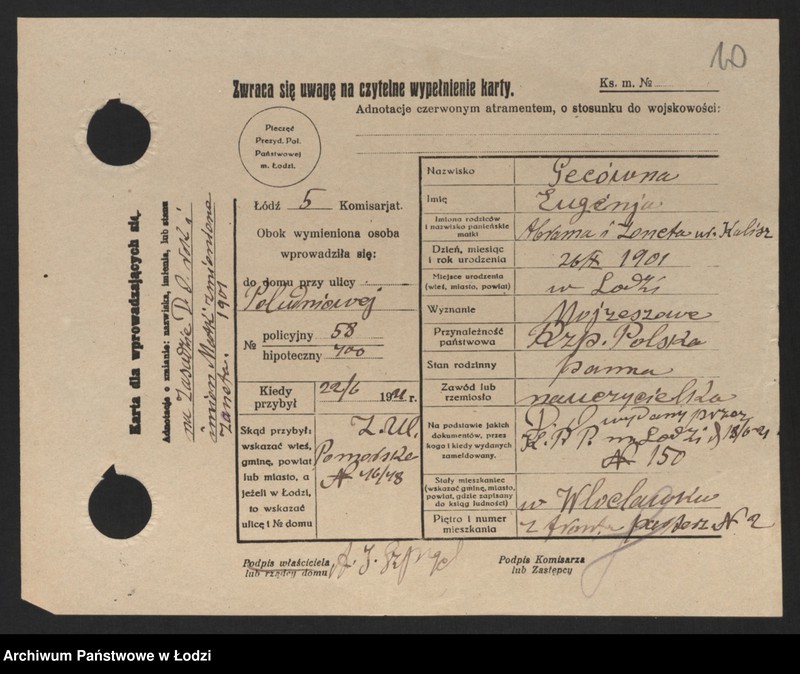 10
Zwraca się uwagę na czytelne wypełnienie karty.
Ks. m. №
Adnotacje czerwonym atramentem, o stosunku do wojskowości:
Pieczęć
Prezyd. Pol.
Państwowej
m. Łodzi.
Karta dla wprowadzających się.
Adnotacje o zmianie: nazwiska, imienia, lub stanu
na zasadzie D. O. roki
imion Matki zmienione
Żaneta. 1901
Łódź 5 Komisarjat.
Obok wymieniona osoba
wprowadziła się:
do domu przy ulicy
Południowej
№ policyjny 58
hipoteczny 700
Kiedy przybył 22/6 1921 r.
Skąd przybył:
wskazać wieś,
gminę, powiat
lub miasto, a
jeżeli w Łodzi,
to wskazać
ulicę i № domu
Z. Ul.
Pomorska
№ 16/18
Nazwisko Gecówna
Imię Eugenja
Imiona rodziców
i nazwisko panieńskie
matki
Abrama i Żaneta ur. Kalisz
Dzień, miesiąc
i rok urodzenia
26/IX 1901
Miejsce urodzenia
(wieś, miasto, powiat)
w Łodzi
Wyznanie Mojżeszowe
Przynależność
państwowa
Rzp. Polska
Stan rodzinny panna
Zawód lub
rzemiosło
nauczycielka
Na podstawie jakich
dokumentów, przez
kogo i kiedy wydanych
zameldowany.
D. O. wydany przez
K. P. P. m. Łodzi d 18/6-21
№ 150
Stały mieszkaniec
(wskazać gminę, miasto,
powiat, gdzie zapisany
do ksiąg ludności)
w Włocławku
Piętro i numer
mieszkania
z frontu parter № 2
Podpis właściciela
lub rządcy domu
A. J.
Podpis Komisarza
lub Zastępcy
Archiwum Państwowe w Łodzi